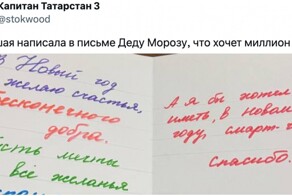 Капитан Татарстан 3
@stokwood
шая написала в письме Деду Морозу, что хочет миллион
В Новый год
желаю счастья,
бесконечного
добра.
мечты
все желанья
А я бы хотел
иметь, в Новом
году, смарт-ч
Спасибо.